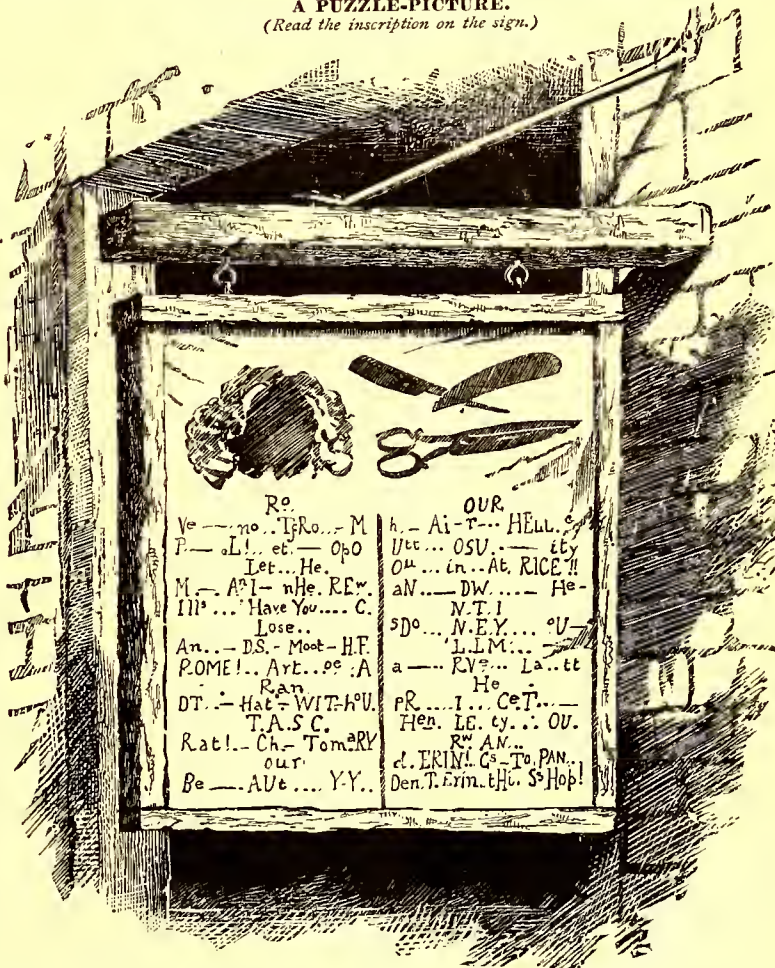 A PUZZLE-PICTURE.
(Read the inscription on the sign.)
Ro.
Ve —..no..TfRo...- M
P.— .L!.. et. — OpO
Let... He.
M.—. AnI— nHe. REw.
Ills ...'Have You.... C.
Lose..
An..- D.S.- Moot- H.F.
ROME!.. Art..oe :A
Ran
DT..-Hat-WIT-hoU.
T.A.S C.
Rat!.- Ch.- TomaRY
our
Be —. AUt .... Y-Y..
OUR
h. - Ai-r--- HELL. e
Utt ... OSU. .— ity
Ou ... in..At, RICE!!
aN..... DW. .... He-
N.T.I
sDo... N.E.Y.... oU—
L.I.M...
a —. RVe... La..tt
He
PR ....I... CeT...—
Hen. LE. ty... OU.
Rw AN...
d. ERIN!. Cs-To, PAN..
Den.T.Erin..tHi. Ss Hop!